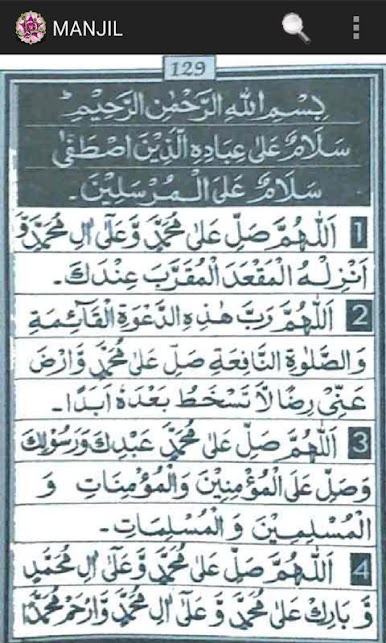 MANJIL
129
بِسْمِ اللهِ الرَّحْمٰنِ الرَّحِيْمِ ط
سَلَامٌ عَلٰى عِبَادِهِ الَّذِيْنَ اصْطَفٰى
سَلَامٌ عَلَى الْمُرْسَلِيْنَ۔
1 اَللّٰهُمَّ صَلِّ عَلٰى مُحَمَّدٍ وَّعَلٰى اٰلِ مُحَمَّدٍ وَّ
اَنْزِلْهُ الْمَقْعَدَ الْمُقَرَّبَ عِنْدَكَ۔
2 اَللّٰهُمَّ رَبَّ هٰذِهِ الدَّعْوَةِ الْقَآئِمَةِ
وَالصَّلٰوةِ النَّافِعَةِ صَلِّ عَلٰى مُحَمَّدٍ وَّارْضَ
عَنِّيْ رِضًا لَّا تَسْخَطُ بَعْدَهٗ اَبَدًا۔
3 اَللّٰهُمَّ صَلِّ عَلٰى مُحَمَّدٍ عَبْدِكَ وَرَسُوْلِكَ
وَصَلِّ عَلَى الْمُؤْمِنِيْنَ وَالْمُؤْمِنَاتِ وَ
الْمُسْلِمِيْنَ وَالْمُسْلِمَاتِ۔
4 اَللّٰهُمَّ صَلِّ عَلٰى مُحَمَّدٍ وَّعَلٰى اٰلِ مُحَمَّدٍ
وَّ بَارِكْ عَلٰى مُحَمَّدٍ وَّ عَلٰى اٰلِ مُحَمَّدٍ وَّارْحَمْ مُحَمَّدًا